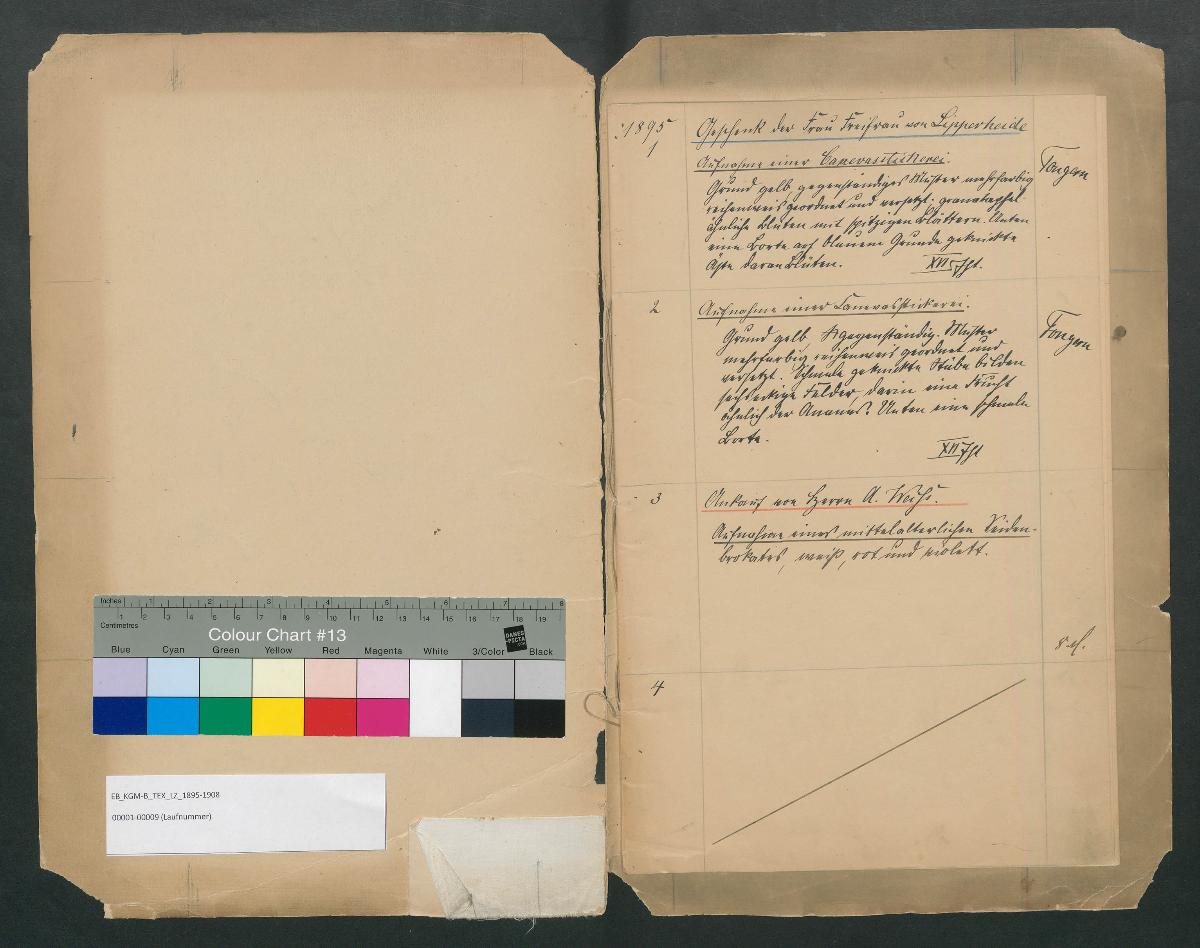 Inches 1 2 3 4 5 6 7 8
1 2 3 4 5 6 7 8 9 10 11 12 13 14 15 16 17 18 19
Centimetres
Colour Chart #13
DANES
PICTA
Blue Cyan Green Yellow Red Magenta White 3/Color Black
EB_KGM-B_TEX_LZ_1895-1908
00001-00009 (Laufnummer)
1895
1
Geschenk der Frau Freifrau von Lipperheide
Aufnahme einer Canevasstickerei.
Grund gelb, gegenständiges Muster mehrfarbig
reihenweis geordnet und versetzt: granatapfel-
ähnliche Blüten mit spitzigen Blättern. Unten
eine Borte auf blauem Grunde geknickte
Äste daran Blüten. XVI Jht.
2
Aufnahme einer Canevasstickerei.
Grund gelb gegenständig. Muster
mehrfarbig reihenweis geordnet und
versetzt. Schmale geknickte Stäbe bilden
sechseckige Felder, darin eine Frucht
ähnlich der Ananas? Unten eine schmale
Borte.
XVI Jht
3
Ankauf von Herrn A.
Aufnahme eines mittelalterlichen Seiden-
brokates, weiß, rot und violett.
8 M.
4